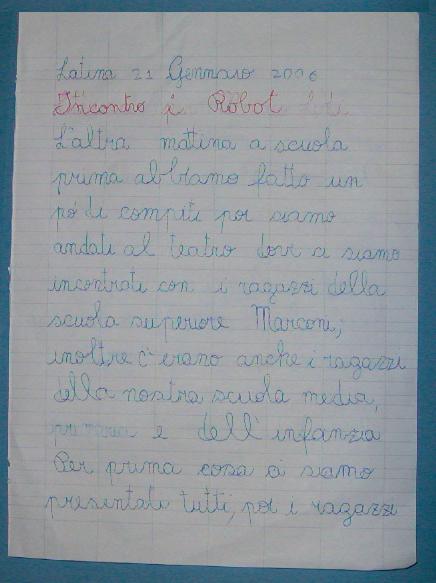 Latina 21 Gennaio 2006
Incontro i Robot
L'altra mattina a scuola
prima abbiamo fatto un
pó di compiti poi siamo
andati al teatro dove ci siamo
incontrati con i ragazzi della
scuola superiore Marconi;
inoltre c'erano anche i ragazzi
della nostra scuola media,
primaria e dell'infanzia
Per prima cosa ci siamo
presentati tutti, poi i ragazzi